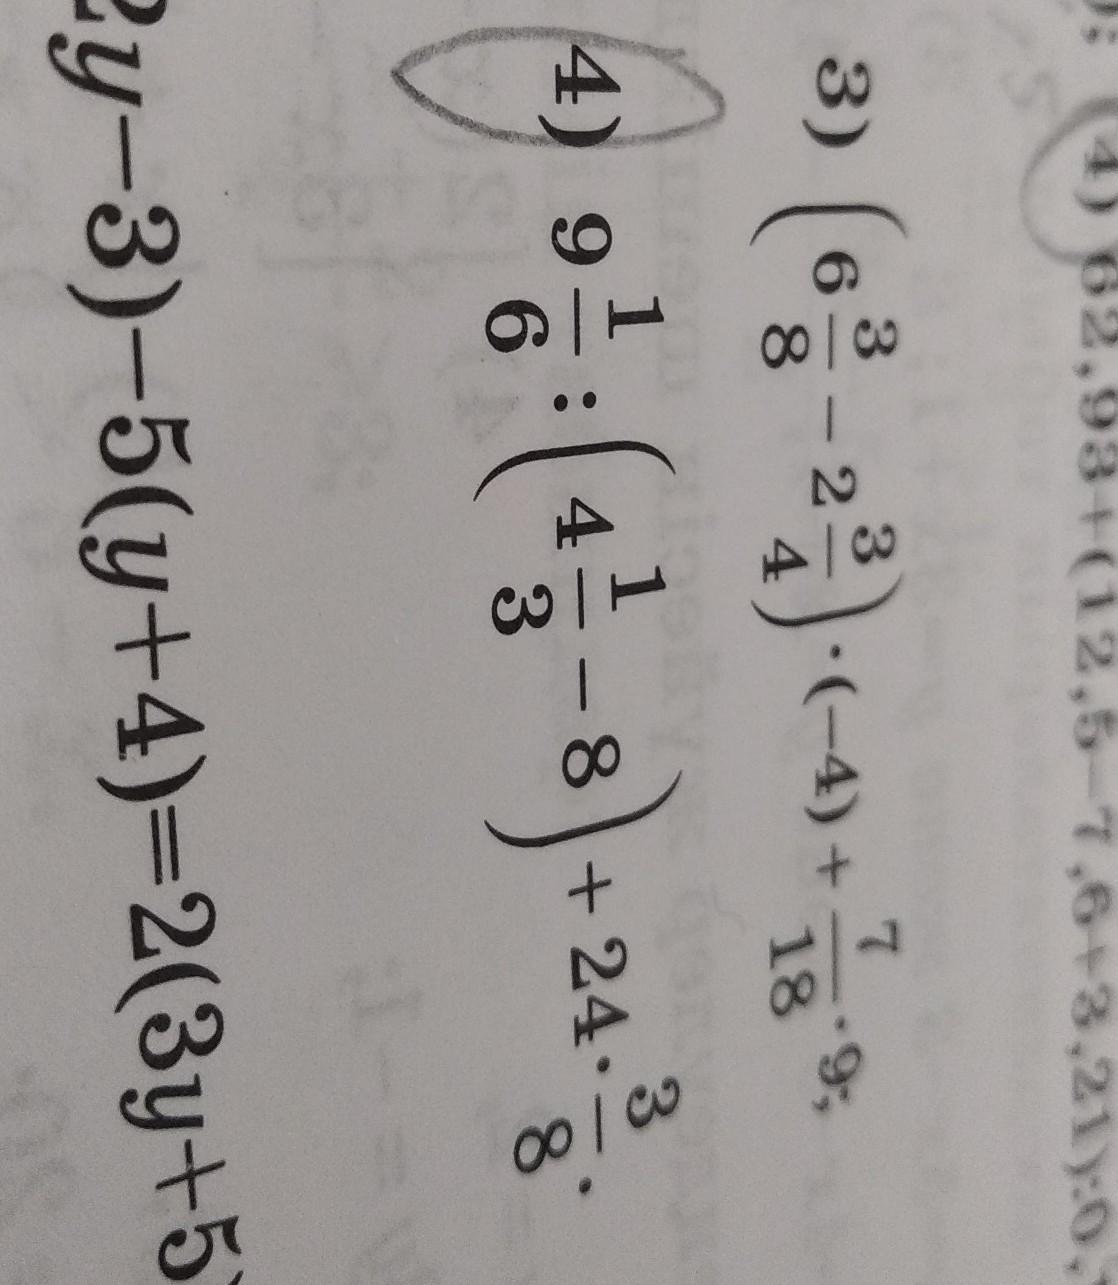 4) 62,93+(12,5–7,6+3,21):0,
3) (6 3/8 − 2 3/4) · (−4) + 7/18 · 9;
4) 9 1/6 : (4 1/3 − 8) + 24 · 3/8.
2y−3)−5(y+4)=2(3y+5)